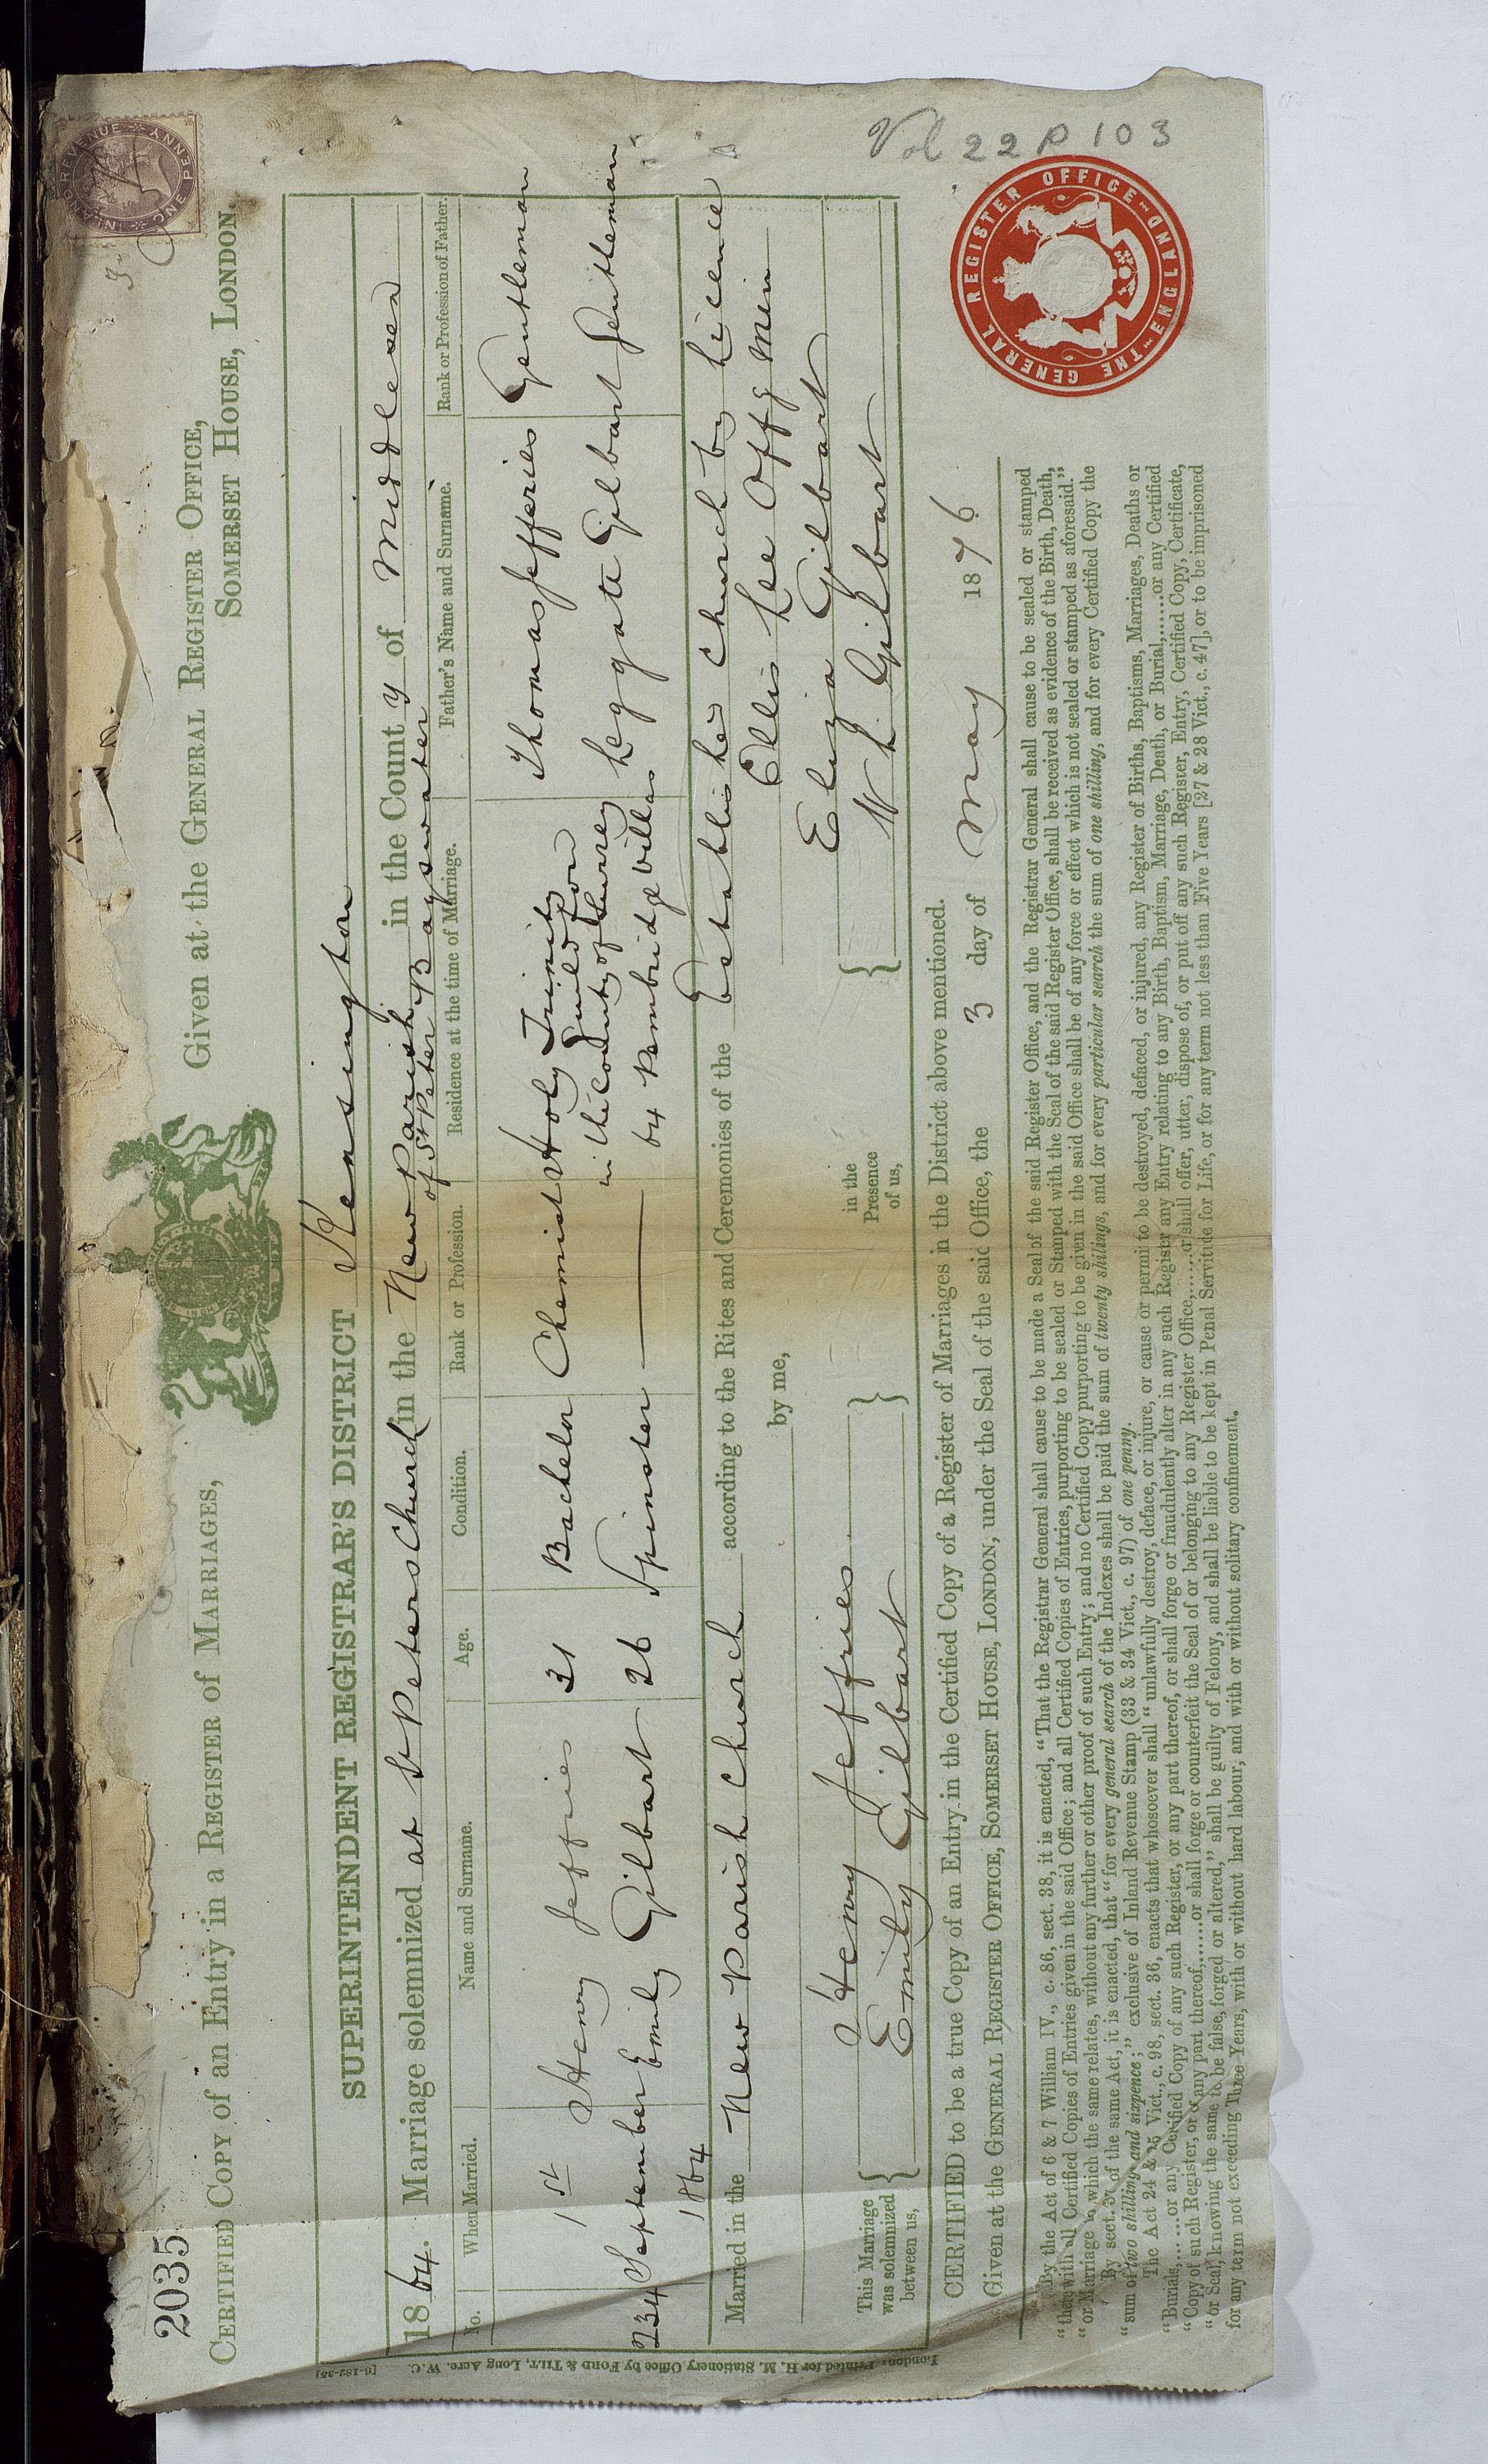 2035
INLAND REVENUE
ONE PENNY
CERTIFIED COPY of an Entry in a REGISTER of MARRIAGES,
Given at the GENERAL REGISTER OFFICE,
SOMERSET HOUSE, LONDON.
SUPERINTENDENT REGISTRAR'S DISTRICT Kensington
1864. Marriage solemnized at St Peters Church in the New Parish in the County of Middlesex
of St Peter Bayswater
No. When Married. Name and Surname. Age. Condition. Rank or Profession. Residence at the time of Marriage. Father's Name and Surname. Rank or Profession of Father.
234 1st September 1864 Henry Jeffries 31 Bachelor Chemist Holy Trinity Guildford in the County of Surrey Thomas Jefferies Gentleman
Emily Gilbart 26 Spinster 64 Pembridge Villas Leggate Gilbart Gentleman
Married in the New Parish Church according to the Rites and Ceremonies of the Established Church by Licence
by me, Ellis Lee Offg Min
This Marriage was solemnized between us, { Henry Jeffries } in the Presence of us, { Eliza Gilbart
Emily Gilbart W L Gilbart
CERTIFIED to be a true Copy of an Entry in the Certified Copy of a Register of Marriages in the District above mentioned.
Given at the GENERAL REGISTER OFFICE, SOMERSET HOUSE, LONDON, under the Seal of the said Office, the 3 day of May 1876
By the Act of 6 & 7 William IV., c. 86, sect. 38, it is enacted, "That the Registrar General shall cause to be made a Seal of the said Register Office, and the Registrar General shall cause to be sealed or stamped
"therewith all Certified Copies of Entries given in the said Office; and all Certified Copies of Entries, purporting to be sealed or Stamped with the Seal of the said Register Office, shall be received as evidence of the Birth, Death,
"or Marriage to which the same relates, without any further or other proof of such Entry; and no Certified Copy purporting to be given in the said Office shall be of any force or effect which is not sealed or stamped as aforesaid."
By sect. 37 of the same Act, it is enacted, that "for every general search of the Indexes shall be paid the sum of twenty shillings, and for every particular search the sum of one shilling, and for every Certified Copy the
"sum of two shilling and sixpence;" exclusive of Inland Revenue Stamp (33 & 34 Vict., c. 97) of one penny.
The Act 24 & 25 Vict., c. 98, sect. 36, enacts that whosoever shall "unlawfully destroy, deface, or injure, or cause or permit to be destroyed, defaced, or injured, any Register of Births, Baptisms, Marriages, Deaths or
"Burials,......or any Certified Copy of any such Register, or any part thereof, or shall forge or fraudulently alter in any such Register any Entry relating to any Birth, Baptism, Marriage, Death, or Burial,......or any Certified
"Copy of such Register, or of any part thereof,......or shall forge or counterfeit the Seal of or belonging to any Register Office,......or shall offer, utter, dispose of, or put off any such Register, Entry, Certified Copy, Certificate,
"or Seal, knowing the same to be false, forged or altered," shall be guilty of Felony, and shall be liable to be kept in Penal Servitude for Life, or for any term not less than Five Years [27 & 28 Vict., c. 47], or to be imprisoned
for any term not exceeding Three Years, with or without hard labour, and with or without solitary confinement.
London: Printed for H. M. Stationery Office by FORD & TILT, Long Acre, W.C.
Vol 22 p 103
THE GENERAL REGISTER OFFICE ENGLAND